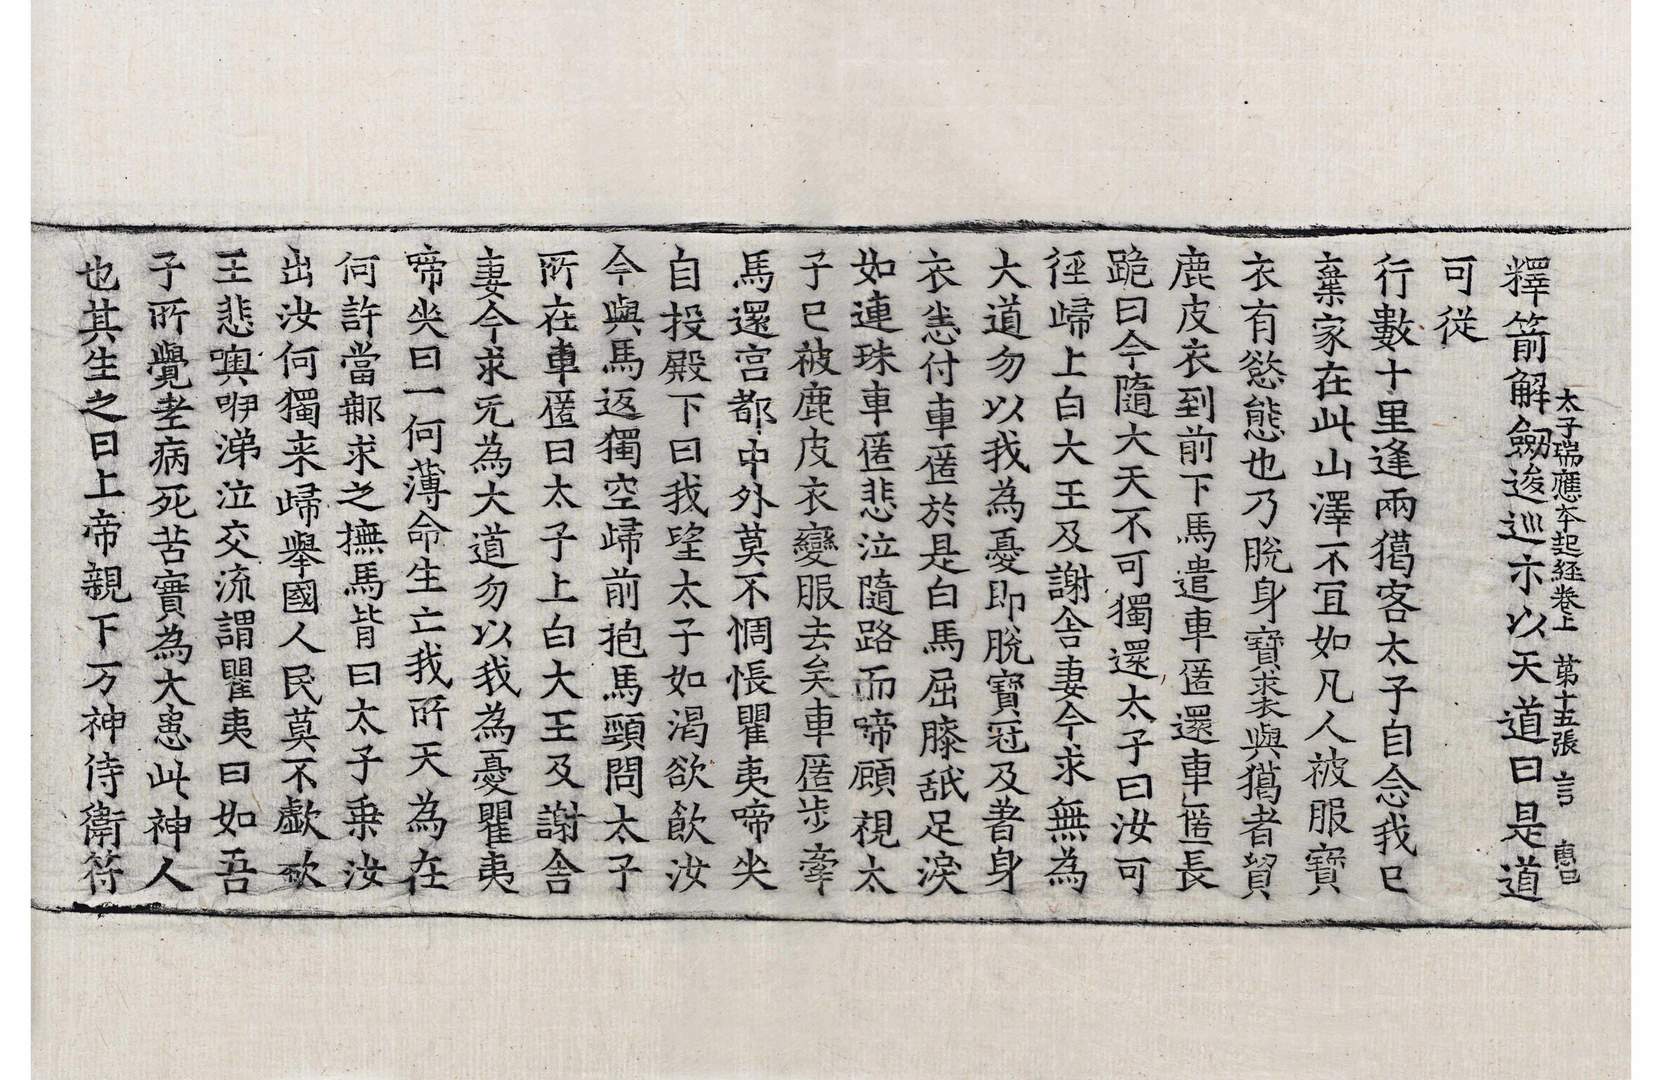 太子瑞應本起経卷上 第十五張 言 惠已
釋箭解劔逡巡示以天道曰是道
可從
行數十里逢兩獦客太子自念我已
棄家在此山澤不宜如凡人被服寶
衣有慾態也乃脫身寶裘與獦者貿
鹿皮衣到前下馬遣車匿還車匿長
跪曰今隨大天不可獨還太子曰汝可
徑歸上白大王及謝舍妻今求無為
大道勿以我為憂即脫寶冠及著身
衣悉付車匿於是白馬屈膝舐足淚
如連珠車匿悲泣隨路而啼顧視太
子已被鹿皮衣變服去矣車匿步牽
馬還宮都中外莫不惆悵瞿夷啼哭
自投殿下曰我望太子如渴欲飲汝
今與馬返獨空歸前抱馬頸問太子
所在車匿曰太子上白大王及謝舍
妻今求无為大道勿以我為憂瞿夷
啼哭曰一何薄命生亡我所天為在
何許當那求之撫馬背曰太子乗汝
出汝何獨来歸舉國人民莫不歔欷
王悲噢咿涕泣交流謂瞿夷曰如吾
子所覺老病死苦實為大患此神人
也其生之日上帝親下万神侍衛符